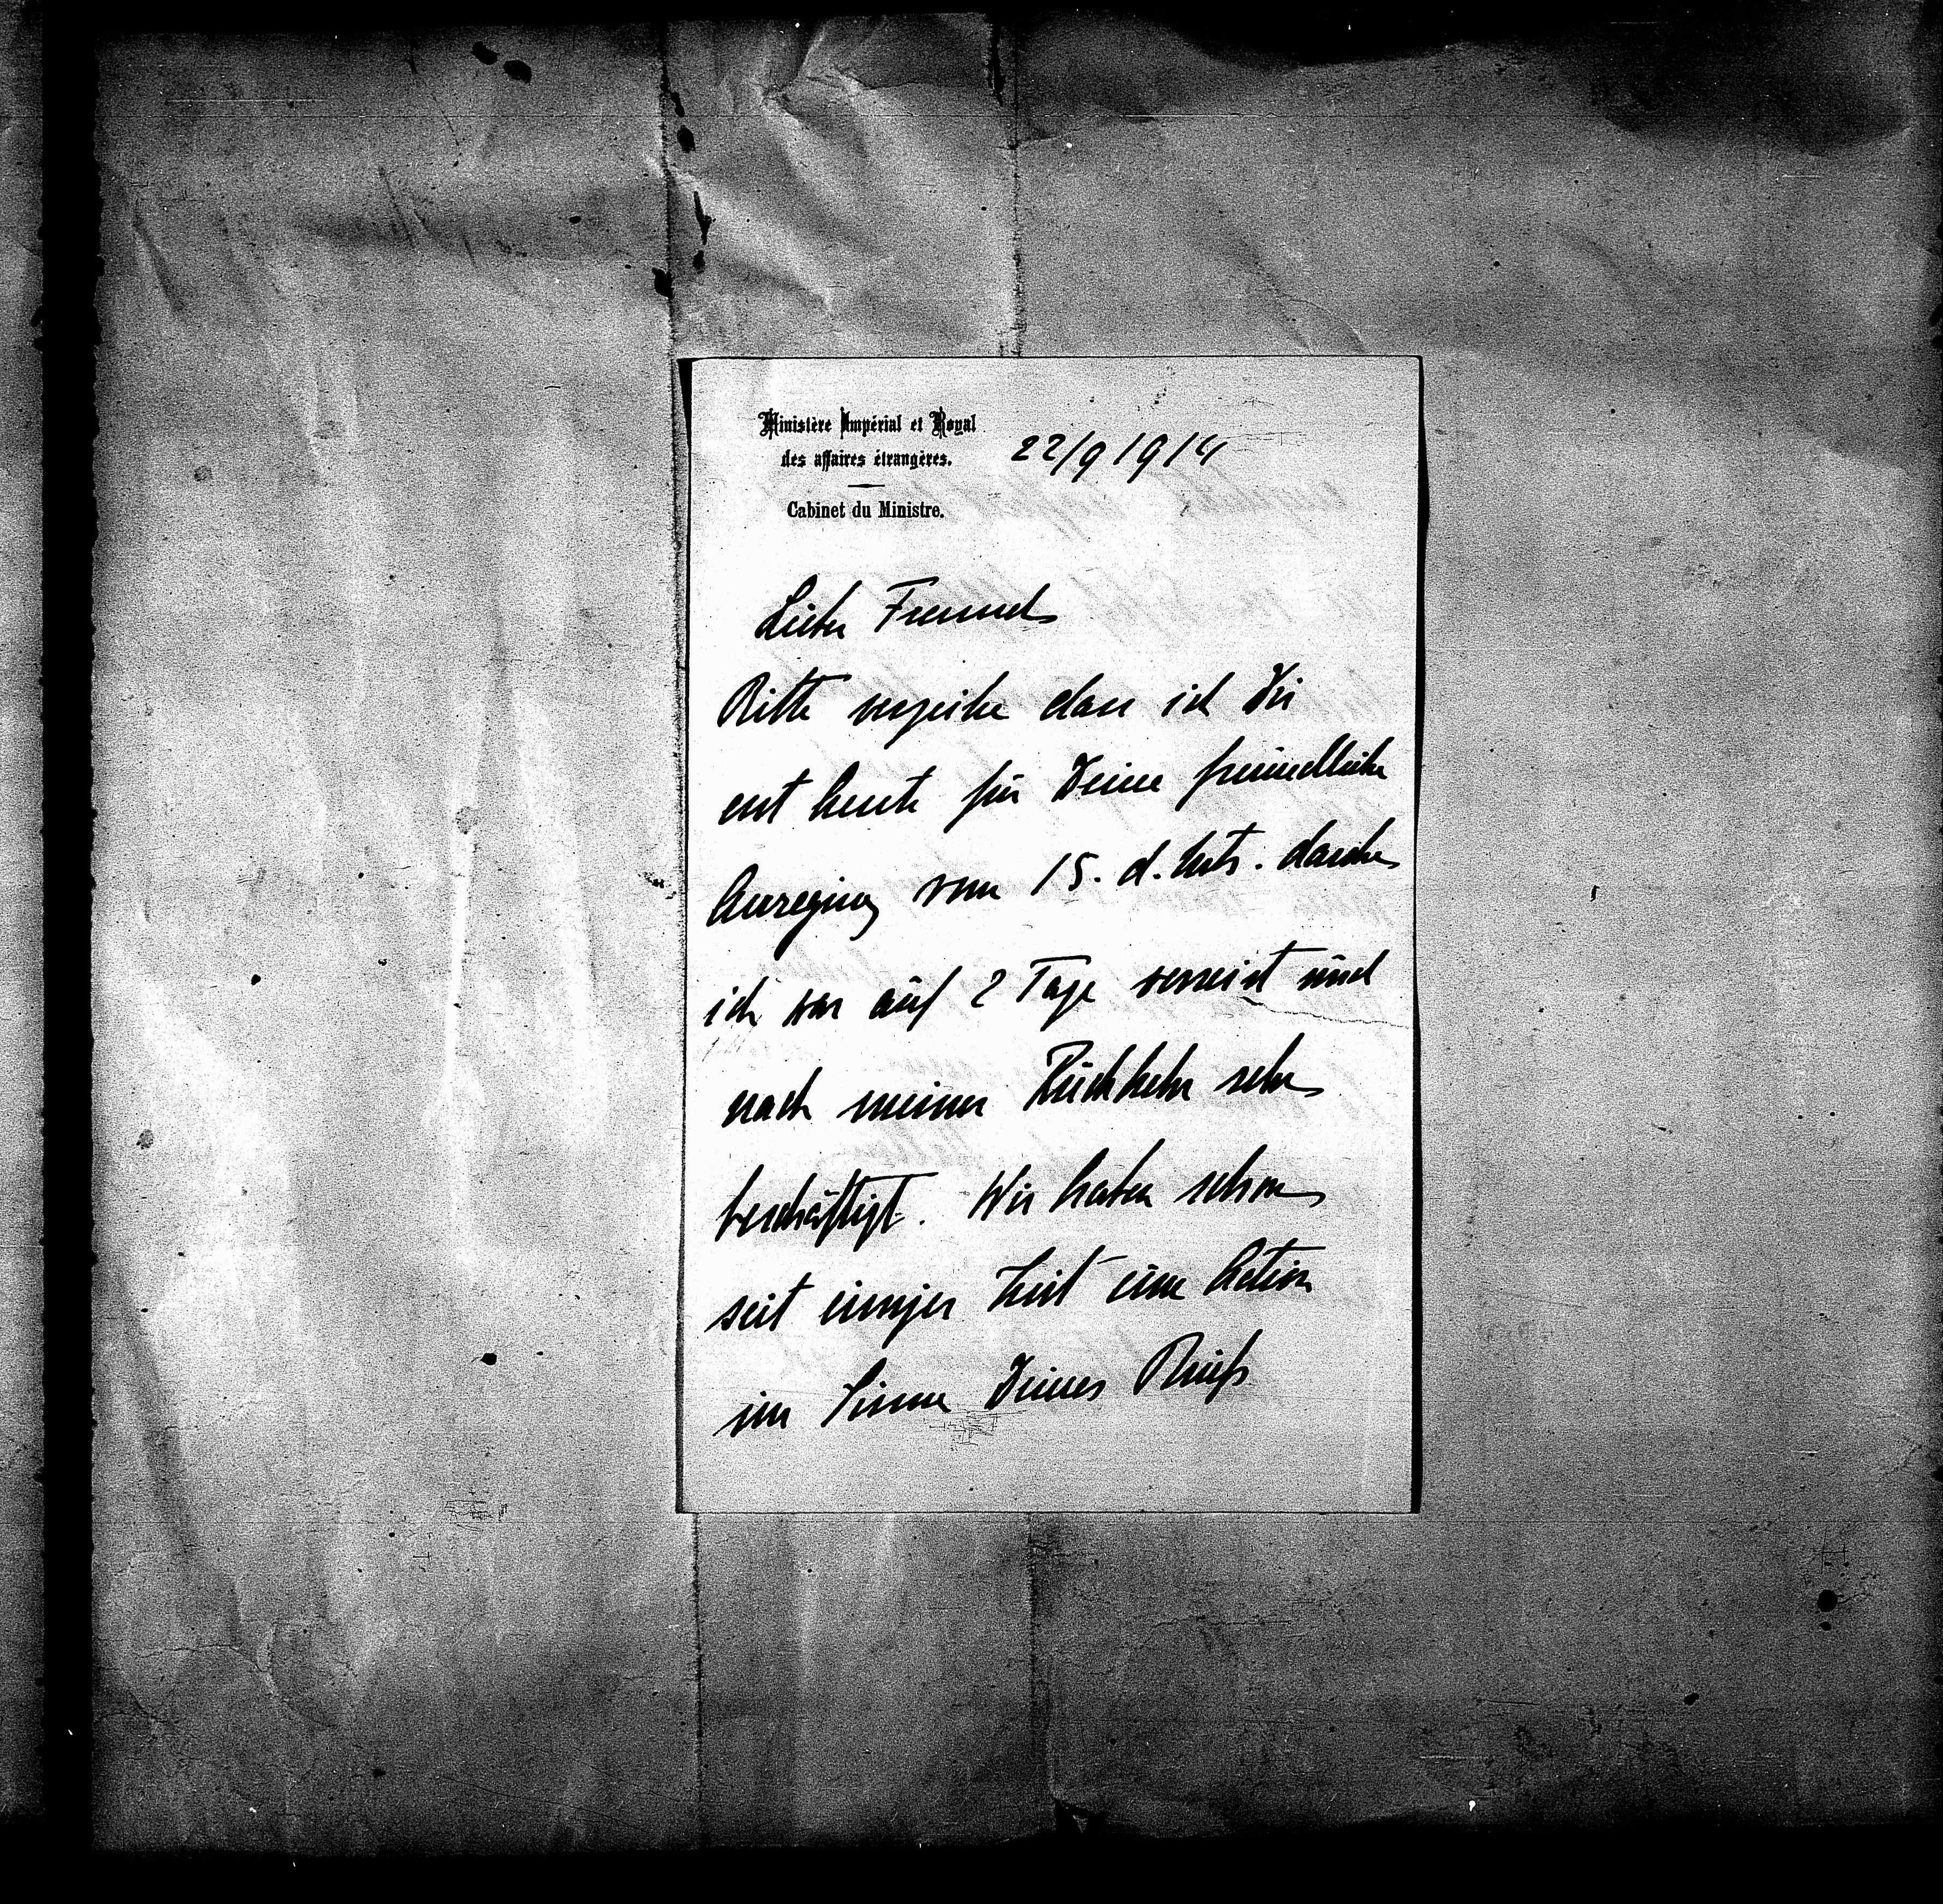 Ministère Impérial et Royal
des affaires étrangères.
Cabinet du Ministre.
22/9 1914
Lieber Freund
Bitte verzeihe dass ich Dir
erst heute für Deine freundliche
Anregung vom 15. d. Mts. danke
ich war auf 2 Tage verreist und
nach meiner Rückkehr sehr
beschäftigt. Wir haben schon
seit einiger Zeit eine Action
im Sinne Deines Briefs